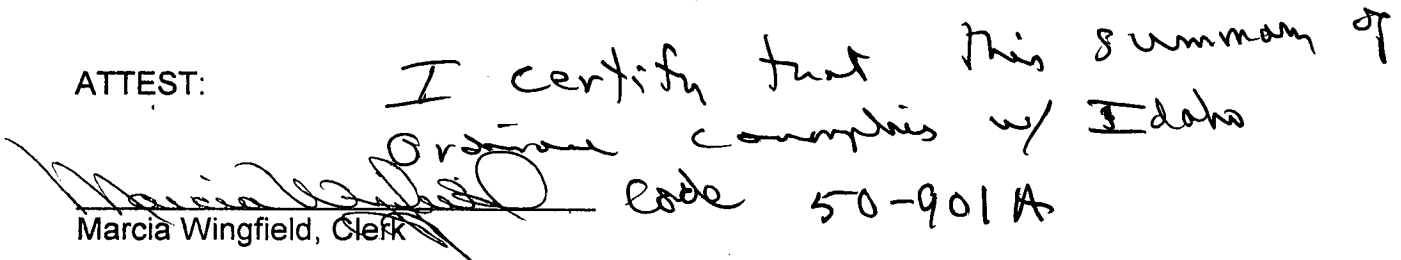 ATTEST:
I certify that this summary of
Ordinance complies w/ Idaho
Code 50-901A
Marcia Wingfield
Marcia Wingfield, Clerk